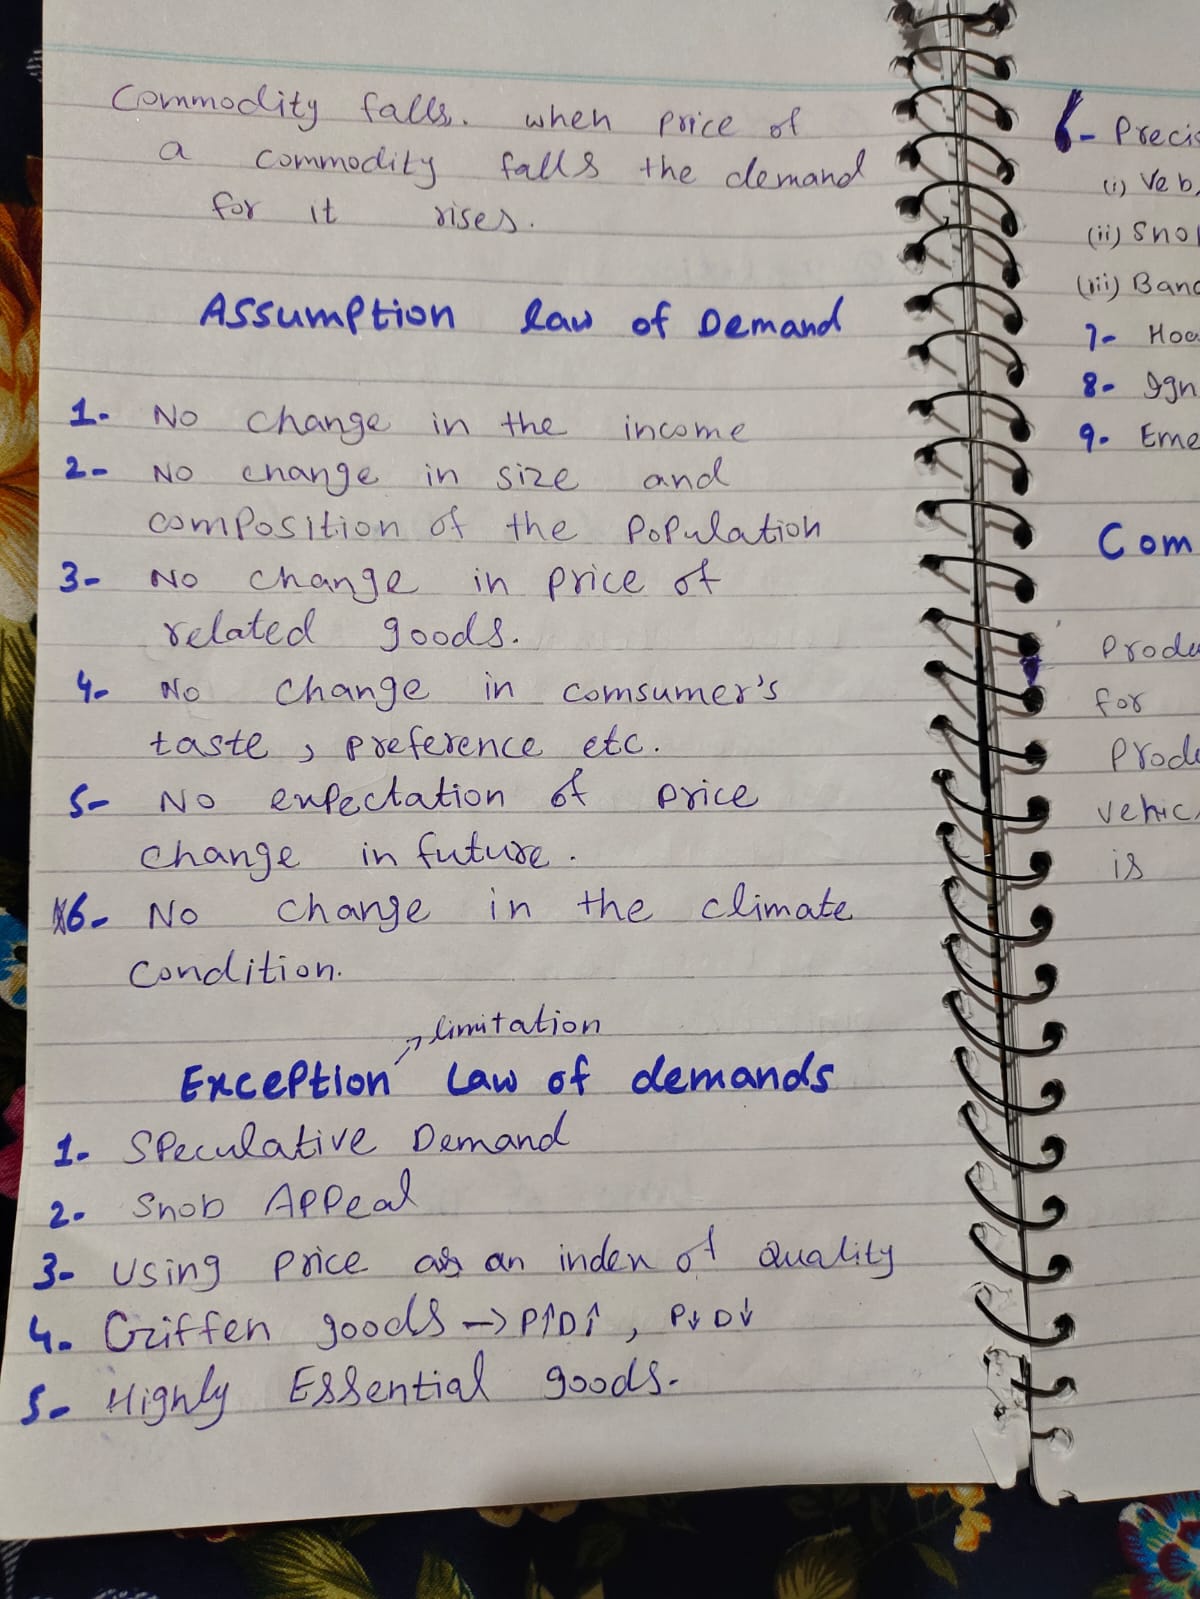 Commodity falls. when price of
a commodity falls the demand
for it rises.
Assumption law of Demand
1- No change in the income
2- No change in size and
composition of the Population
3- No change in price of
related goods.
4- No change in comsumer's
taste, preference etc.
5- No enpectation of price
change in future.
6- No change in the climate
condition.
→ limitation
Exception Law of demands
1- Speculative Demand
2- Snob Appeal
3- Using price as an inden of Quality
4- Griffen goods → P↑D↑, P↓D↓
5- Highly Essential goods.
6- Precis
(i) Veb
(ii) Sno
(iii) Band
7- Hoa
8- Ign
9- Eme
Com
Produ
for
Produ
vehic
is